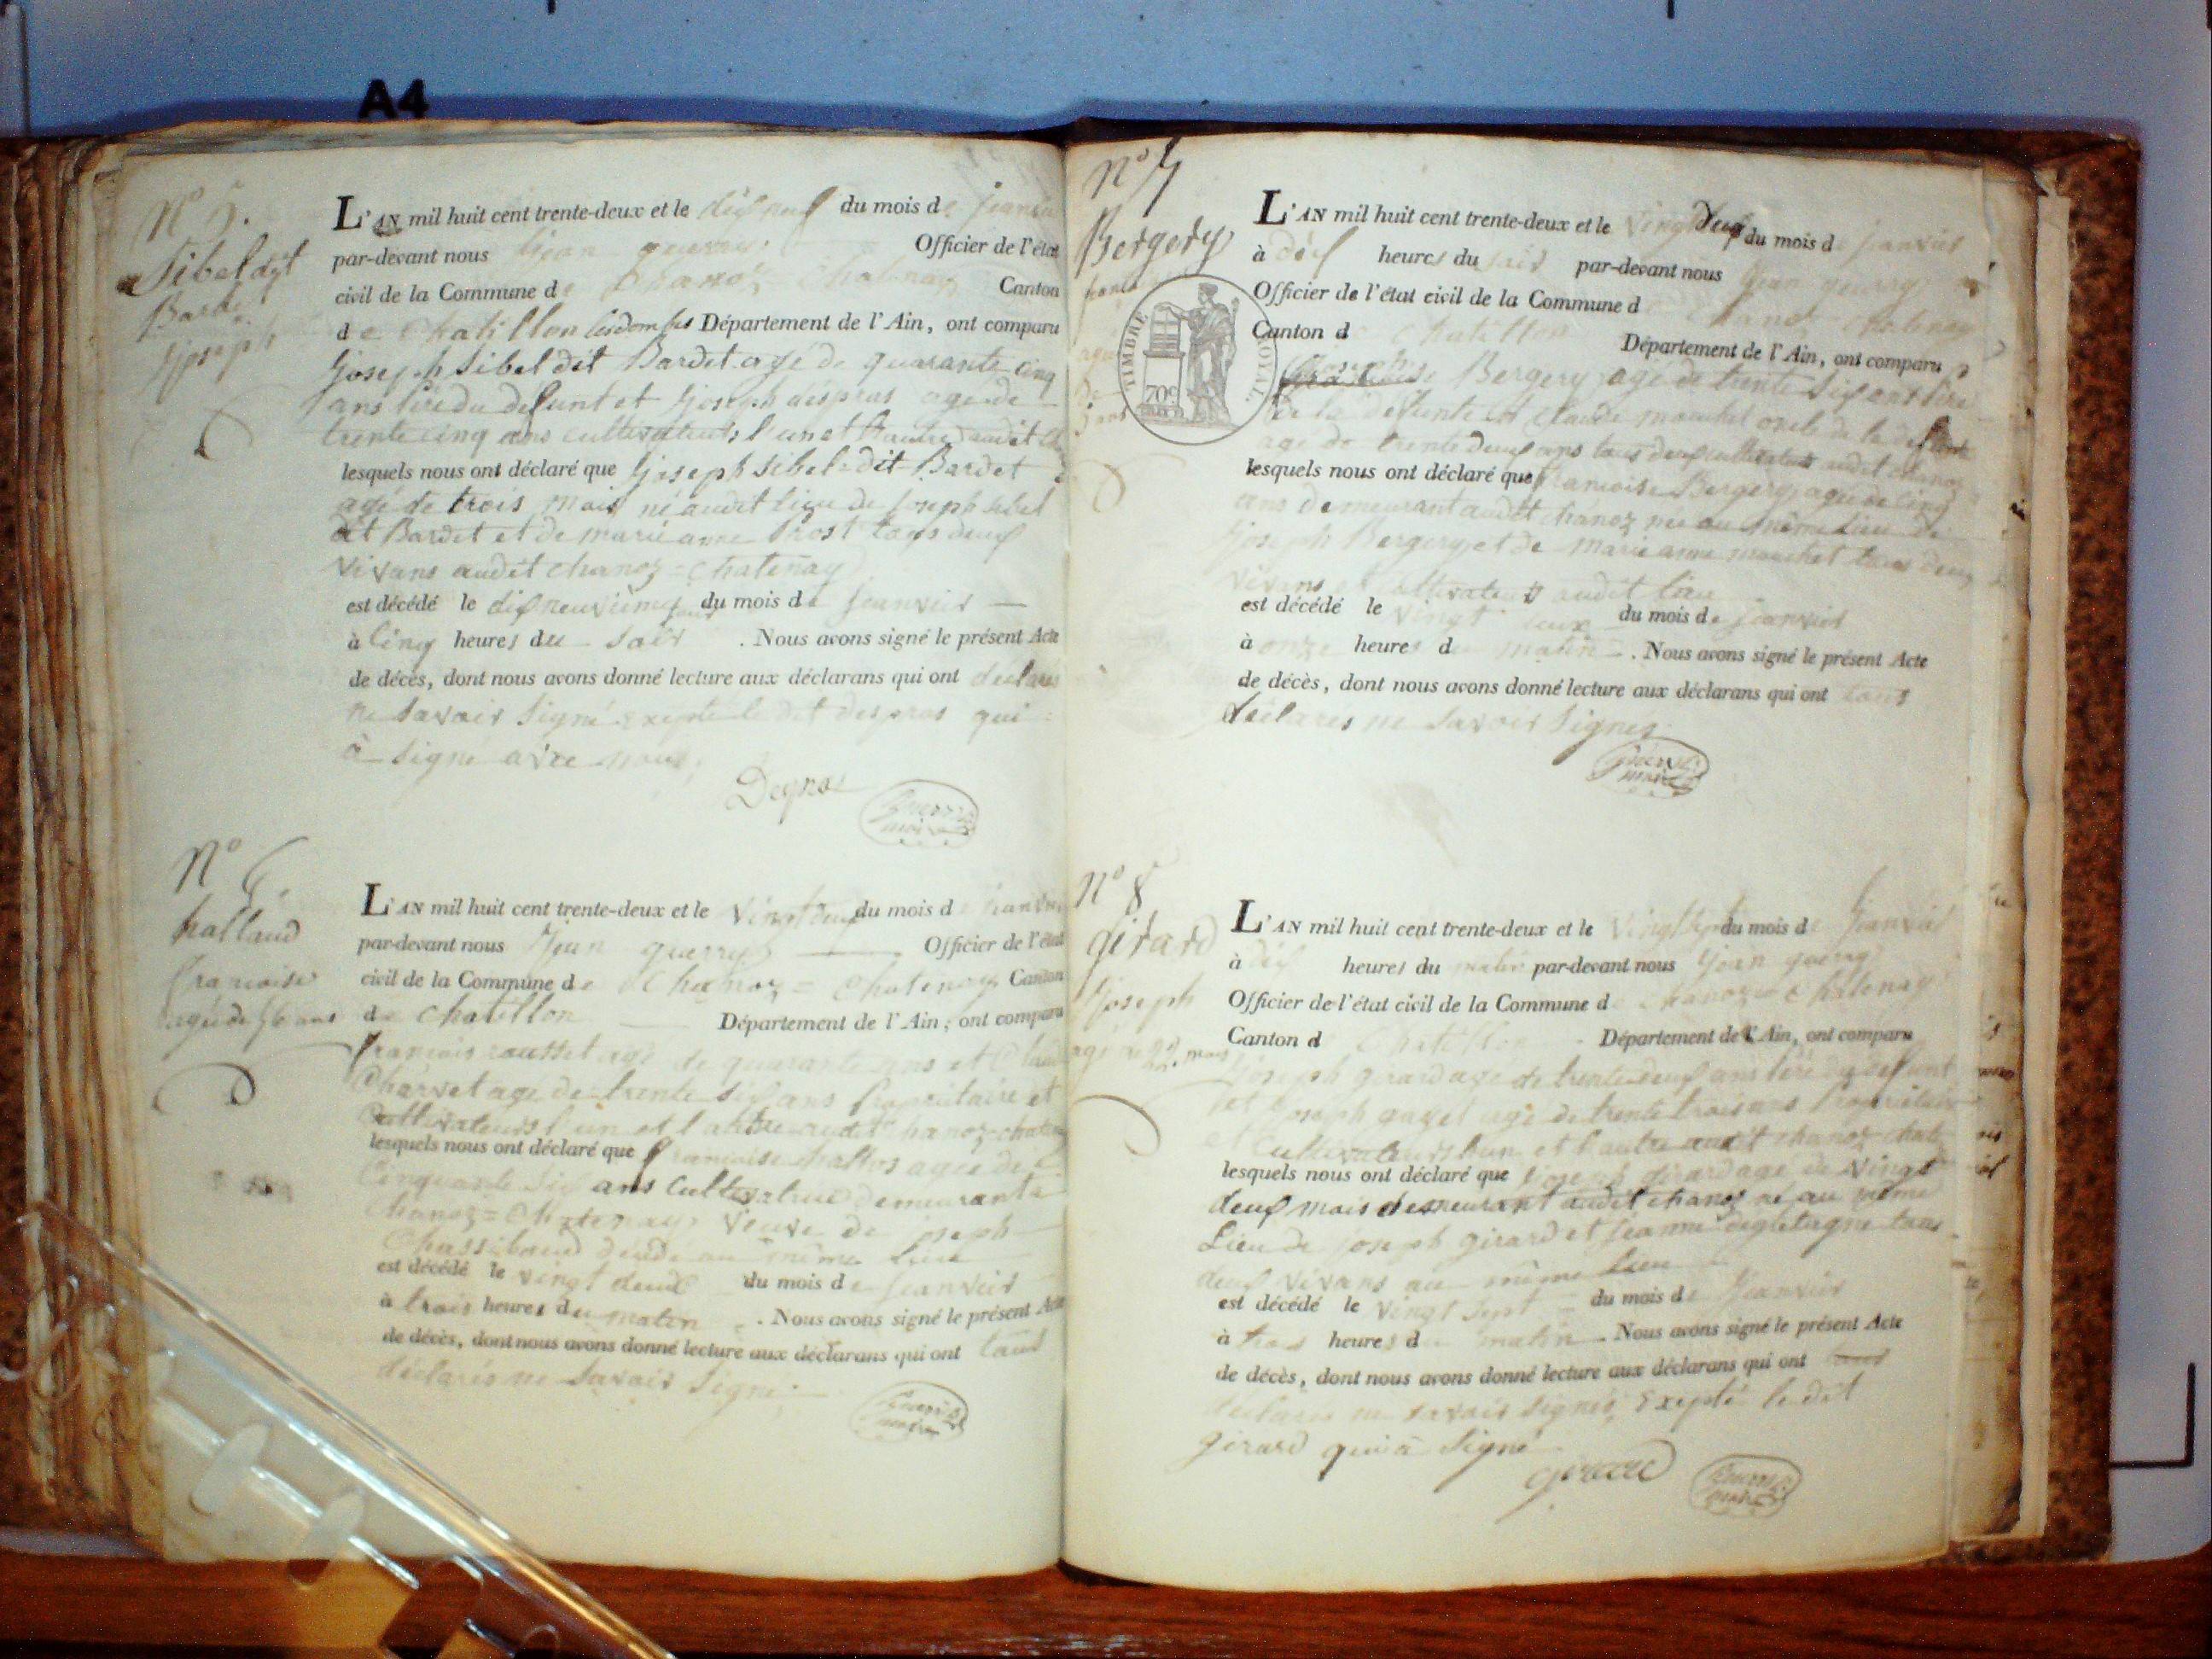 A4
N° 5.
Sibel dit
Barde
Joseph
L'AN mil huit cent trente-deux et le du mois de janvier
par-devant nous jean guerry Officier de l'état
civil de la Commune de Chanoz Chatenay Canton
de Chatillon lesdombes Département de l'Ain, ont comparu
joseph Sibel dit Bardet agé de quarante cinq
ans Père du defunt et joseph despras agé de
trente cinq ans cultivateurs l'un et l'autre audit
lesquels nous ont déclaré que joseph Sibel dit Bardet
agé de trois mois né audit lieu de joseph Sibel
dit Bardet et de marie anne Prost tous deux
vivans audit chanoz = Chatenay
est décédé le dixneuvieme jour du mois de janvier
à cinq heures du Soir . Nous avons signé le présent Acte
de décès, dont nous avons donné lecture aux déclarans qui ont déclarés
ne Savoir Signé Exepté le dit despras qui
à Signé avec nous
N° 6.
francoise
agée de 56 ans
L'AN mil huit cent trente-deux et le vingt deux du mois de janvier
par-devant nous jean guerry Officier de l'état
civil de la Commune de Chanoz = Chatenay Canton
de Chatillon Département de l'Ain, ont comparu
francois rousset agé de quarante ans et
Charvet agé de trente Six ans Propriétaire et
cultivateurs l'un et l'autre audit chanoz
lesquels nous ont déclaré que francoise agée de
Cinquante Six ans Cultivatrice demeurant à
Chanoz = Chatenay veuve de joseph
décédé au même Lieu
est décédé le vingt deux du mois de janvier
à trois heures du matin . Nous avons signé le présent Acte
de décès, dont nous avons donné lecture aux déclarans qui ont tous
déclarés ne Savoir Signé
N° 7
Bergery
TIMBRE ROYAL
70c
L'AN mil huit cent trente-deux et le vingt deux du mois de janvier
à dix heures du soir par-devant nous jean guerry
Officier de l'état civil de la Commune de Chanoz Chatenay
Canton de Chatillon Département de l'Ain, ont comparu
Bergery agé de trente Six ans Père
de la defunte et claude mouchet oncle de la defunte
agé de trente deux ans tous deux cultivateurs audit chanoz
lesquels nous ont déclaré que francoise Bergery agée de cinq
ans demeurant audit chanoz née au même lieu de
joseph Bergery et de marie anne mouchet tous deux
vivans et cultivateurs audit lieu
est décédé le vingt deux du mois de janvier
à onze heures du matin . Nous avons signé le présent Acte
de décès, dont nous avons donné lecture aux déclarans qui ont tous
déclarés ne Savoir Signer
N° 8
girard
joseph
agé de 22 mois
L'AN mil huit cent trente-deux et le vingt sept du mois de janvier
à dix heures du matin par-devant nous jean guerry
Officier de l'état civil de la Commune de Chanoz = Chatenay
Canton de Chatillon Département de l'Ain, ont comparu
joseph girard agé de trente deux ans Père du defunt
et joseph gayet agé de trente trois ans Propriétaire
et Cultivateurs l'un et l'autre audit chanoz
lesquels nous ont déclaré que joseph girard agé de vingt
deux mois demeurant audit chanoz né au même
Lieu de joseph girard et jeanne tous
deux vivans au même lieu
est décédé le vingt sept du mois de janvier
à trois heures du matin . Nous avons signé le présent Acte
de décès, dont nous avons donné lecture aux déclarans qui ont
déclarés ne savoir signés Exepté le dit
girard qui à Signé